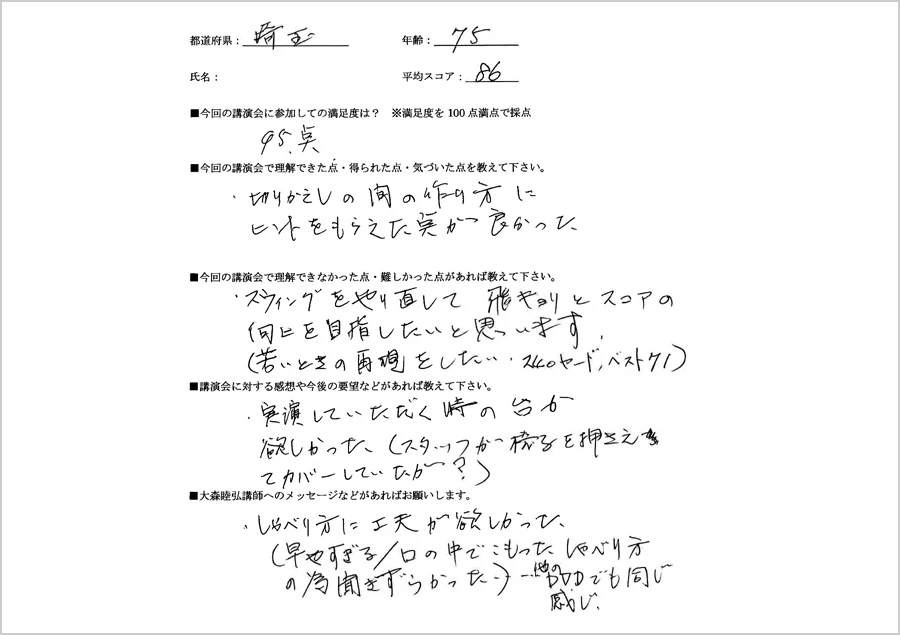 都道府県：埼玉 年齢：75
氏名： 平均スコア：86
■今回の講演会に参加しての満足度は？ ※満足度を100点満点で採点
95点
■今回の講演会で理解できた点・得られた点・気づいた点を教えて下さい。
・切りかえしの間の作り方に
ヒントをもらえた点が良かった。
■今回の講演会で理解できなかった点・難しかった点があれば教えて下さい。
・スウィングをやり直して飛キョリとスコアの
向上を目指したいと思っています。
(若いときの再現をしたい・240ヤード、ベスト71)
■講演会に対する感想や今後の要望などがあれば教えて下さい。
・実演していただく時の台が
欲しかった。(スタッフが椅子を押さえ
てカバーしていたが？)
■大森睦弘講師へのメッセージなどがあればお願いします。
・しゃべり方に工夫が欲しかった。
(早やすぎる/口の中でこもったしゃべり方
の為聞きずらかった。)…他のDVDでも同じ
感じ。